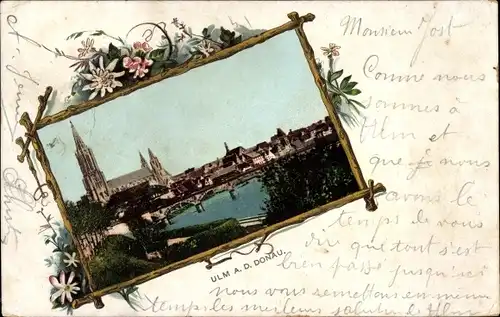 Monsieur Jost
Comme nous
sommes à
Ulm et
que nous
avons le
temps de vous
dire que tout s'est
bien passé jusqu'ici
nous vous remettons en même
temps les meilleurs salutations de Ulm
ULM A. D. DONAU.